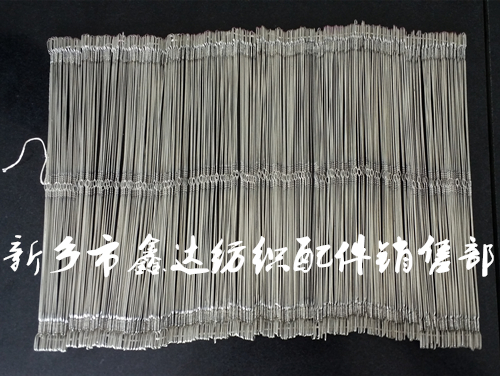 新乡市鑫达纺织配件销售部